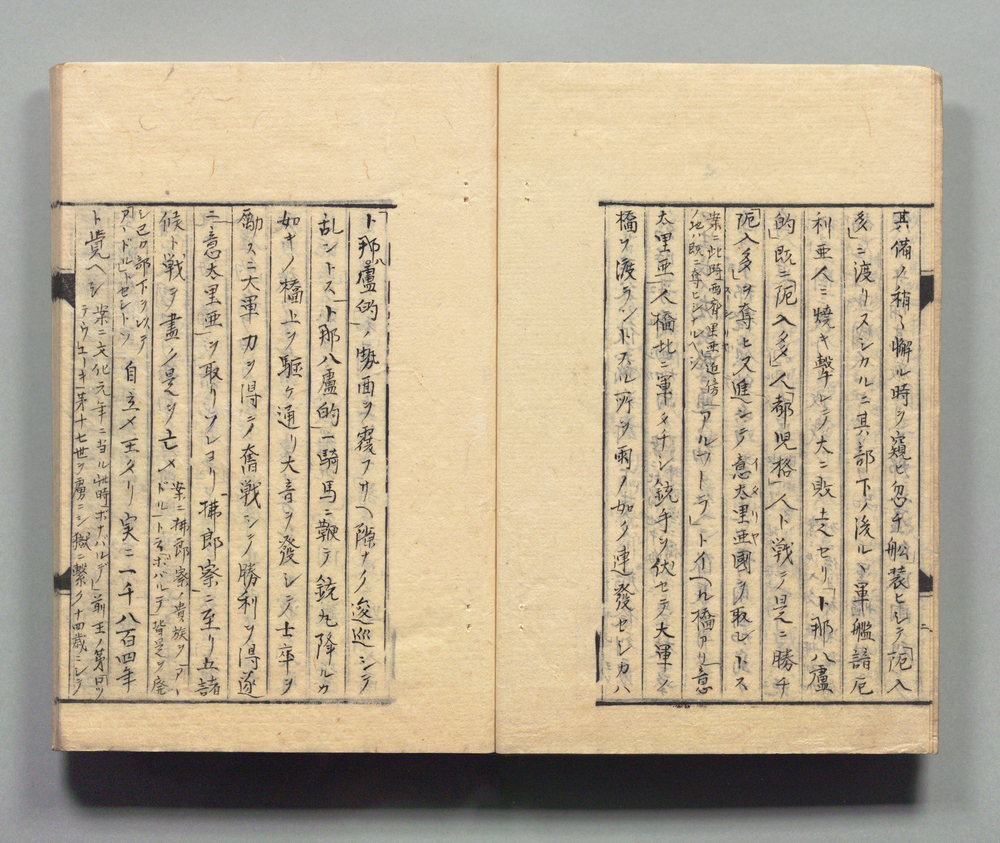 其備ノ稍〻懈ル時ヲ窺ヒ忽チ舩装ヒシテ「阨入
多」ニ渡リスシカルニ其部下ノ後ル丶軍艦諳厄
利亜人ニ焼キ撃レテ大ニ敗走セリ「ト那八盧
的」既ニ「阨入多」人「都児格」人ト戦テ是ニ勝チ
「阨入多」ヲ奪ヒ又進シテ意太里亜國ヲ取レトス
イタリヤ
案ニ此時西齊里亜近傍
ノ地ハ既ニ奪ヒシナルベシ
「アルウトラ」トイヘル橋アリ意
太里亜人橋北ニ軍メナシ銃手ヲ伏セテ大軍ノ
橋ヲ渡ラントスル所ヲ雨ノ如ク連發セシカハ
「ト那八盧的」勢面ヲ覆フサヘ隙ナク逡巡シテ
乱ントス「ト那八盧的」一騎馬ニ鞭テ銃丸降ルカ
如キノ橋上ヲ駆ケ通リ大音ヲ發シテ士卒ヲ
勵スニ大軍力ヲ得テ奮戦シテ勝利ヲ得遂
ニ意太里亜ヲ取リソレヨリ拂郎察ニ至リ五諸
候ト戦テ盡ク是ヲ亡メ
案ニ拂郎察ノ貴族ヲ「アー
ドル」ト云「ボナパルテ」皆是ヲ廃
シ己カ部下ヲ以テ
「アードル」トセシトゾ
自立メ王タリ実ニ一千八百四年
ト覚ヘシ
案ニ文化元年ニ当ル此時「ボナパルテ」前王ノ弟「ロヲ
デウェーキ」第十七世ヲ虜ニシ獄ニ繋ク十四歳ニシテ
二